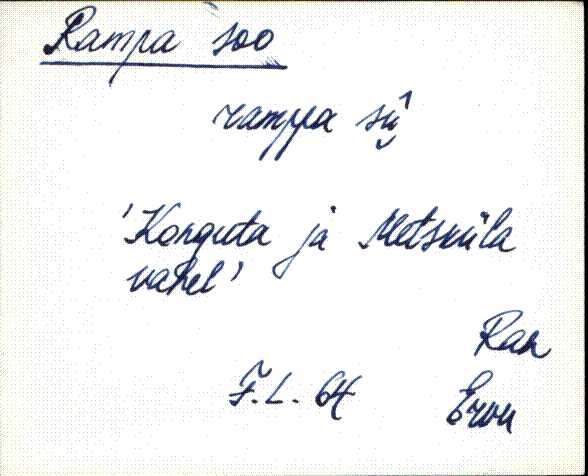 Rampa soo
rampa sū̬
'Konguta ja Metsküla
vahel'
Ran
F. L. 64 Ervu